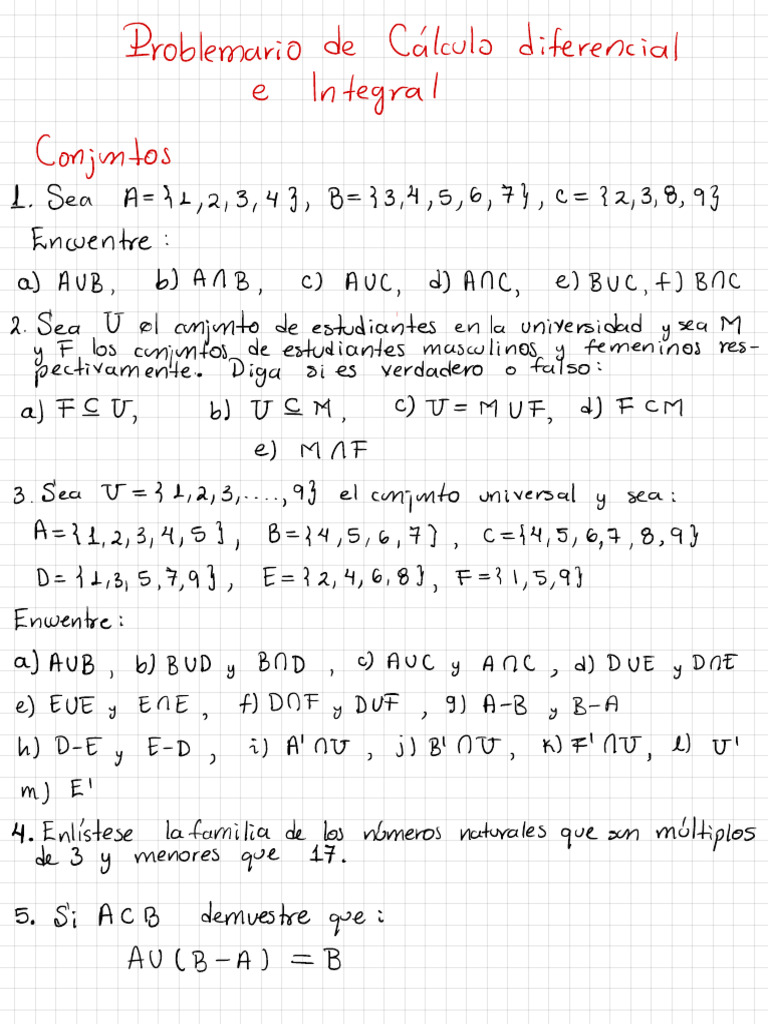 Problemario de Cálculo diferencial
e Integral
Conjuntos
1. Sea A={1,2,3,4}, B={3,4,5,6,7}, C={2,3,8,9}
Encuentre:
a) A∪B, b) A∩B, c) A∪C, d) A∩C, e) B∪C, f) B∩C
2. Sea U el conjunto de estudiantes en la universidad y sea M
y F los conjuntos de estudiantes masculinos y femeninos res-
pectivamente. Diga si es verdadero o falso:
a) F⊆U, b) U⊆M, c) U=M∪F, d) F⊂M
e) M∩F
3. Sea U={1,2,3,....,9} el conjunto universal y sea:
A={1,2,3,4,5}, B={4,5,6,7}, C={4,5,6,7,8,9}
D={1,3,5,7,9}, E={2,4,6,8}, F={1,5,9}
Encuentre:
a) A∪B, b) B∪D y B∩D, c) A∪C y A∩C, d) D∪E y D∩E
e) E∪E y E∩E, f) D∩F y D∪F, g) A-B y B-A
h) D-E y E-D, i) A'∩U, j) B'∩U, k) F'∩U, l) U'
m) E'
4. Enlístese la familia de los números naturales que son múltiplos
de 3 y menores que 17.
5. Si A⊂B demuestre que:
A∪(B-A)=B